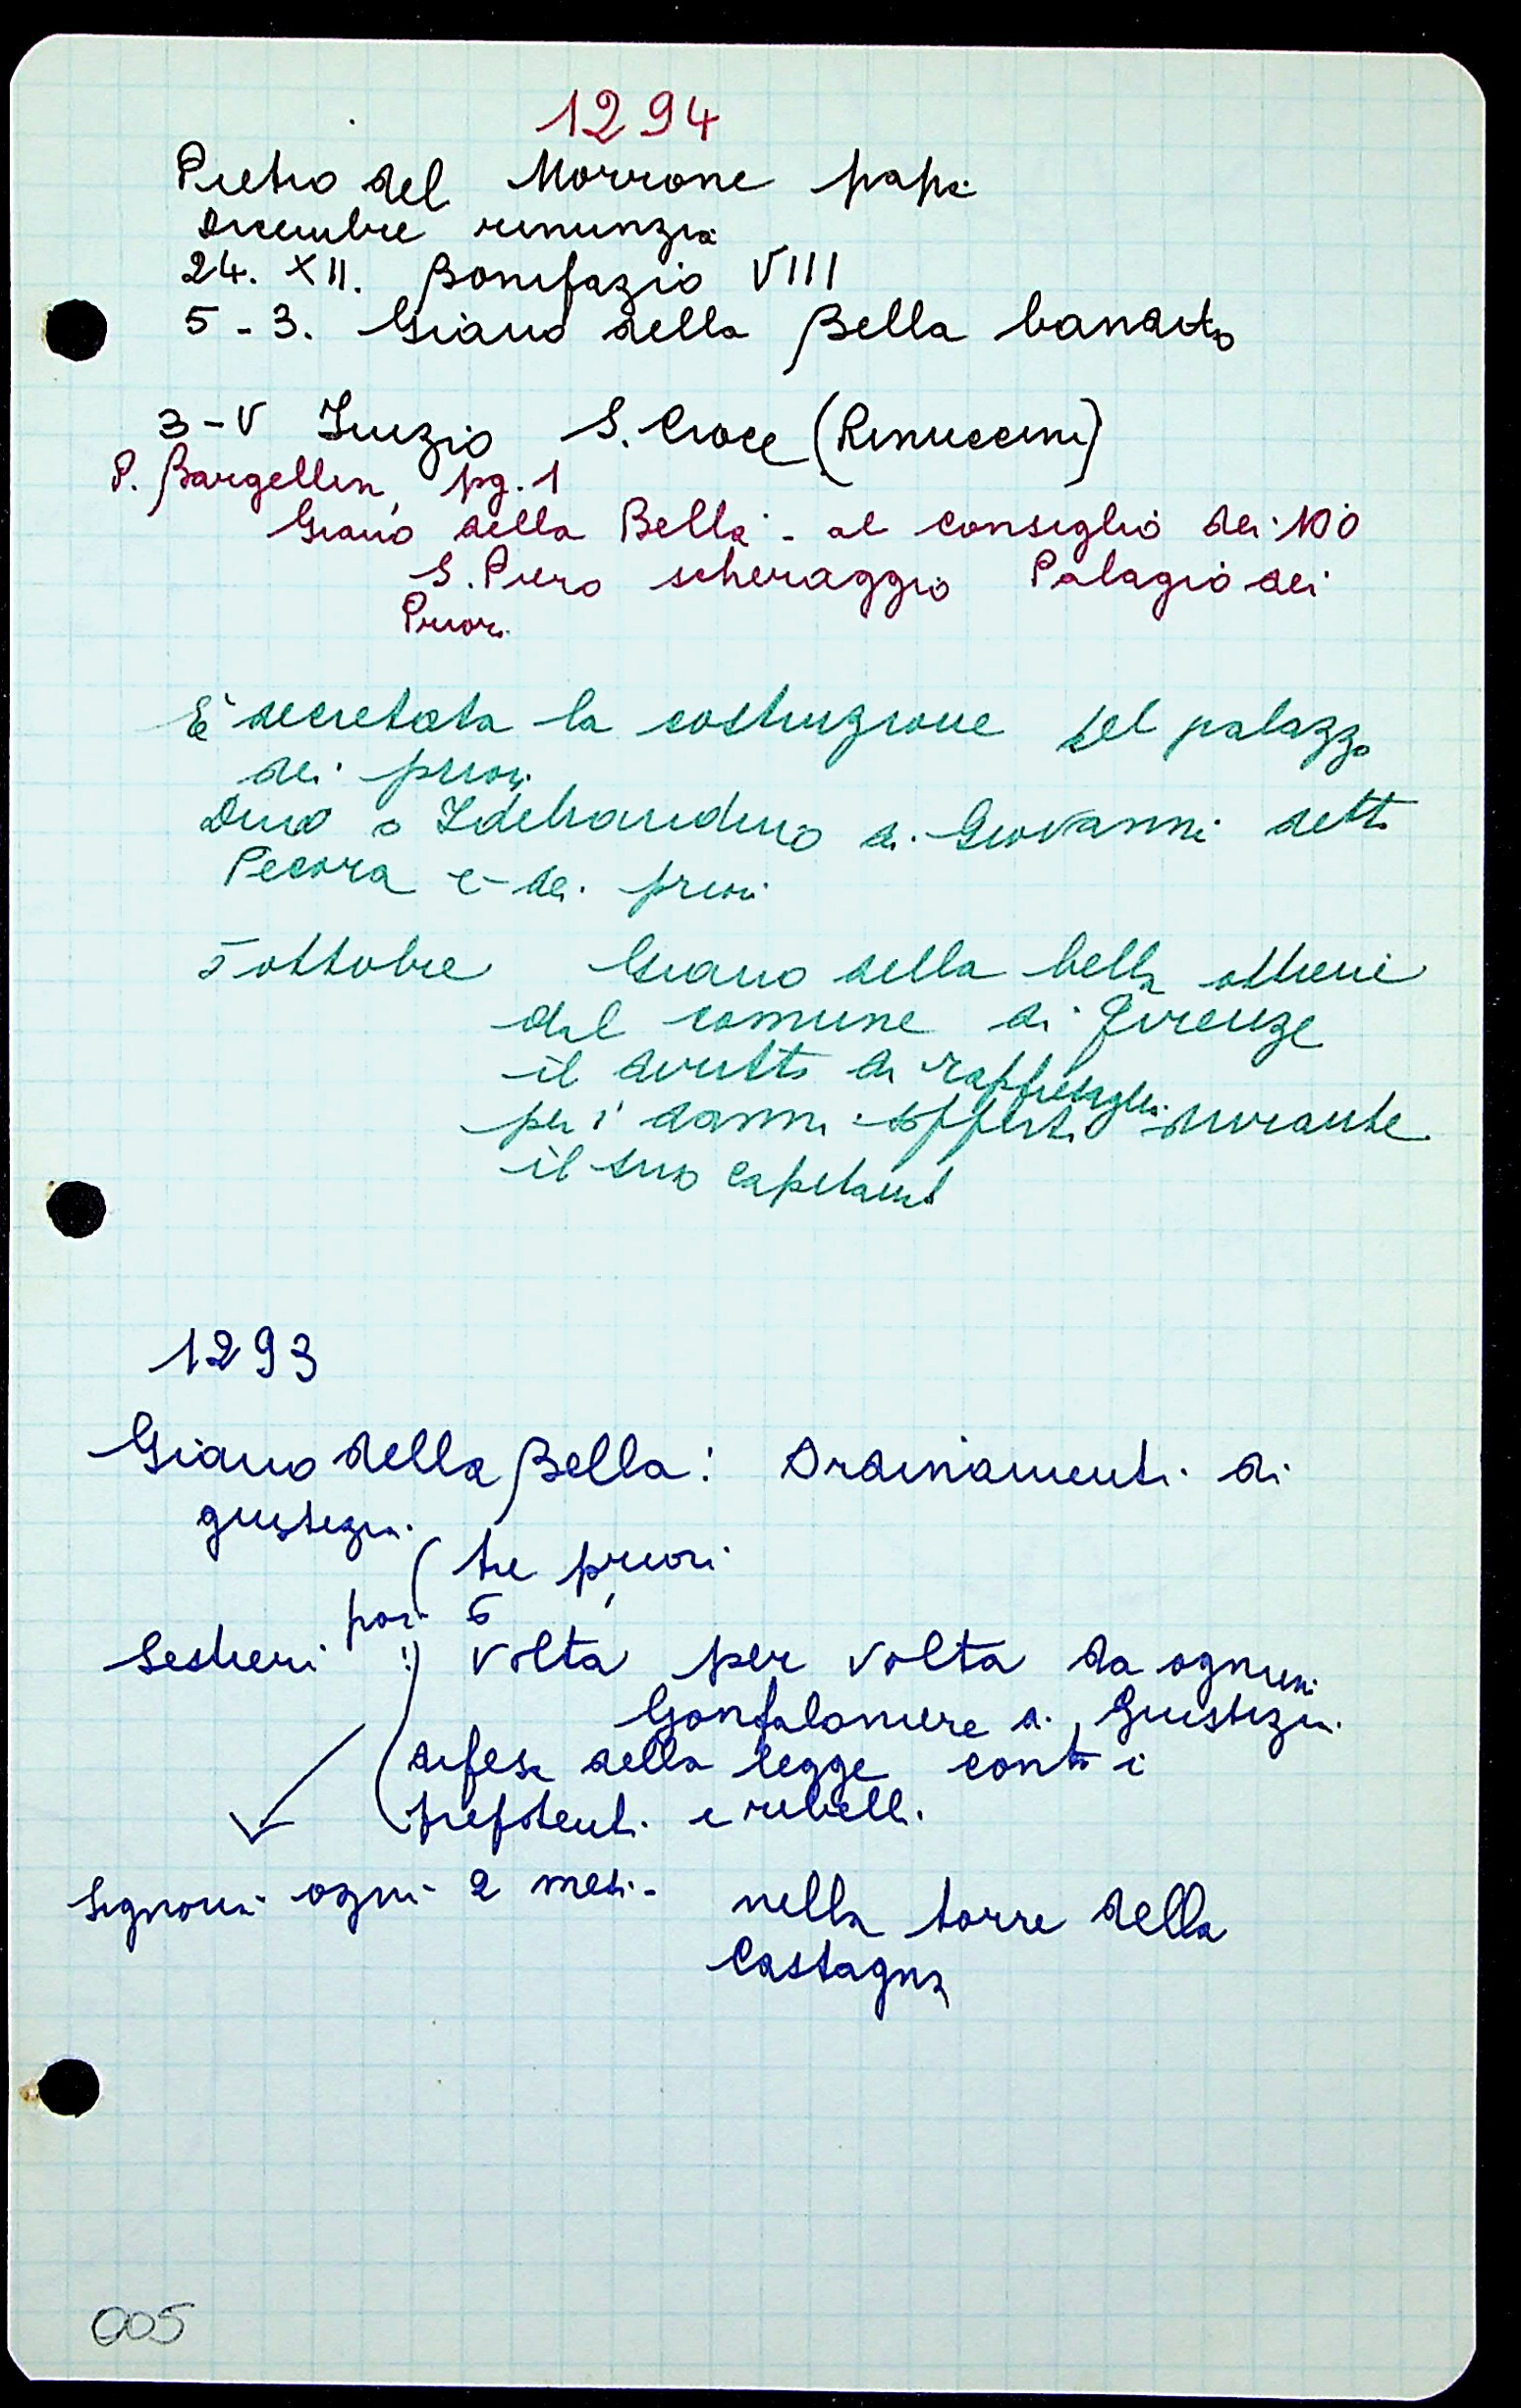 1294
Pietro del Morrone papa
Dicembre rinunzia
24. XII. Bonifazio VIII
5-3. Giano della Bella bandito
3-V Inizio S. Croce (Rinuccini)
P. Bargellini, pg. 1
Giano della Bella - al consiglio dei 100
S. Piero scheraggio Palagio dei
Priori
È decretata la costruzione del palazzo
dei priori
Dino o Ildebrandino di Giovanni detto
Pecora è dei priori
5 ottobre Giano della bella ottiene
dal comune di Firenze
il diritto di rappresaglia
per i danni sofferti durante
il suo capitanat
1293
Giano della Bella: Ordinamenti di
giustizia.
tre priori
poi 6
Sestieri volta per volta da ognuni
Gonfaloniere di Giustizia.
difesa della legge contro i
prepotenti e ribelli.
Signoria ogni 2 mesi - nella torre della
Castagna
005